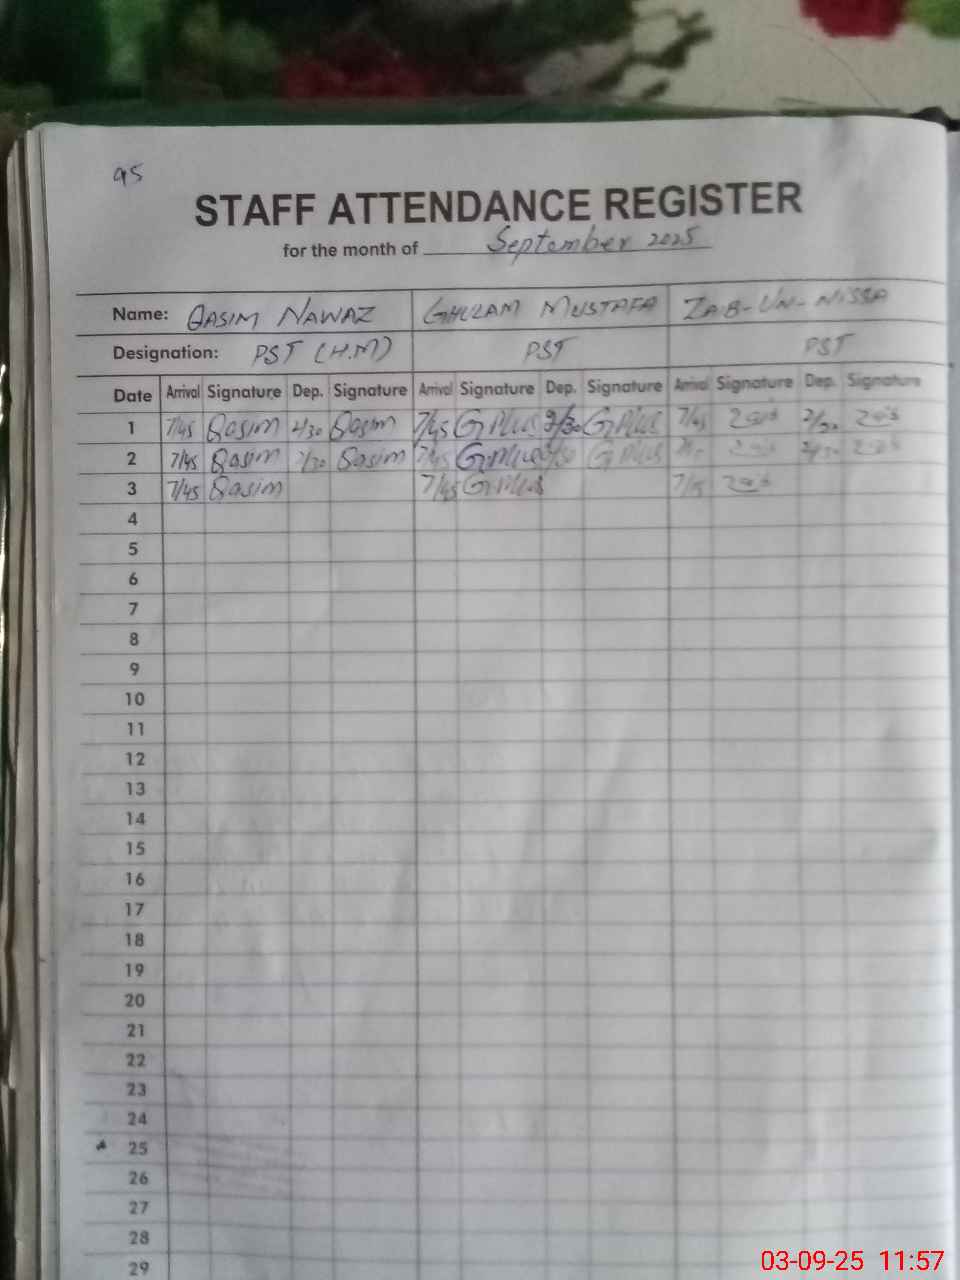 95
STAFF ATTENDANCE REGISTER
for the month of September 2025
Name: QASIM NAWAZ GHULAM MUSTAFA ZAIB-UN-NISSA
Designation: PST (H.M) PST PST
Date Arrival Signature Dep. Signature Arrival Signature Dep. Signature Arrival Signature Dep. Signature
1 7/45 Qasim 2/30 Qasim 7/45 2/30 7/45 2/30
2 7/45 Qasim 2/30 Qasim 7/45 2/30
3 7/45 Qasim 7/45
4
5
6
7
8
9
10
11
12
13
14
15
16
17
18
19
20
21
22
23
24
25
26
27
28
29
03-09-25 11:57